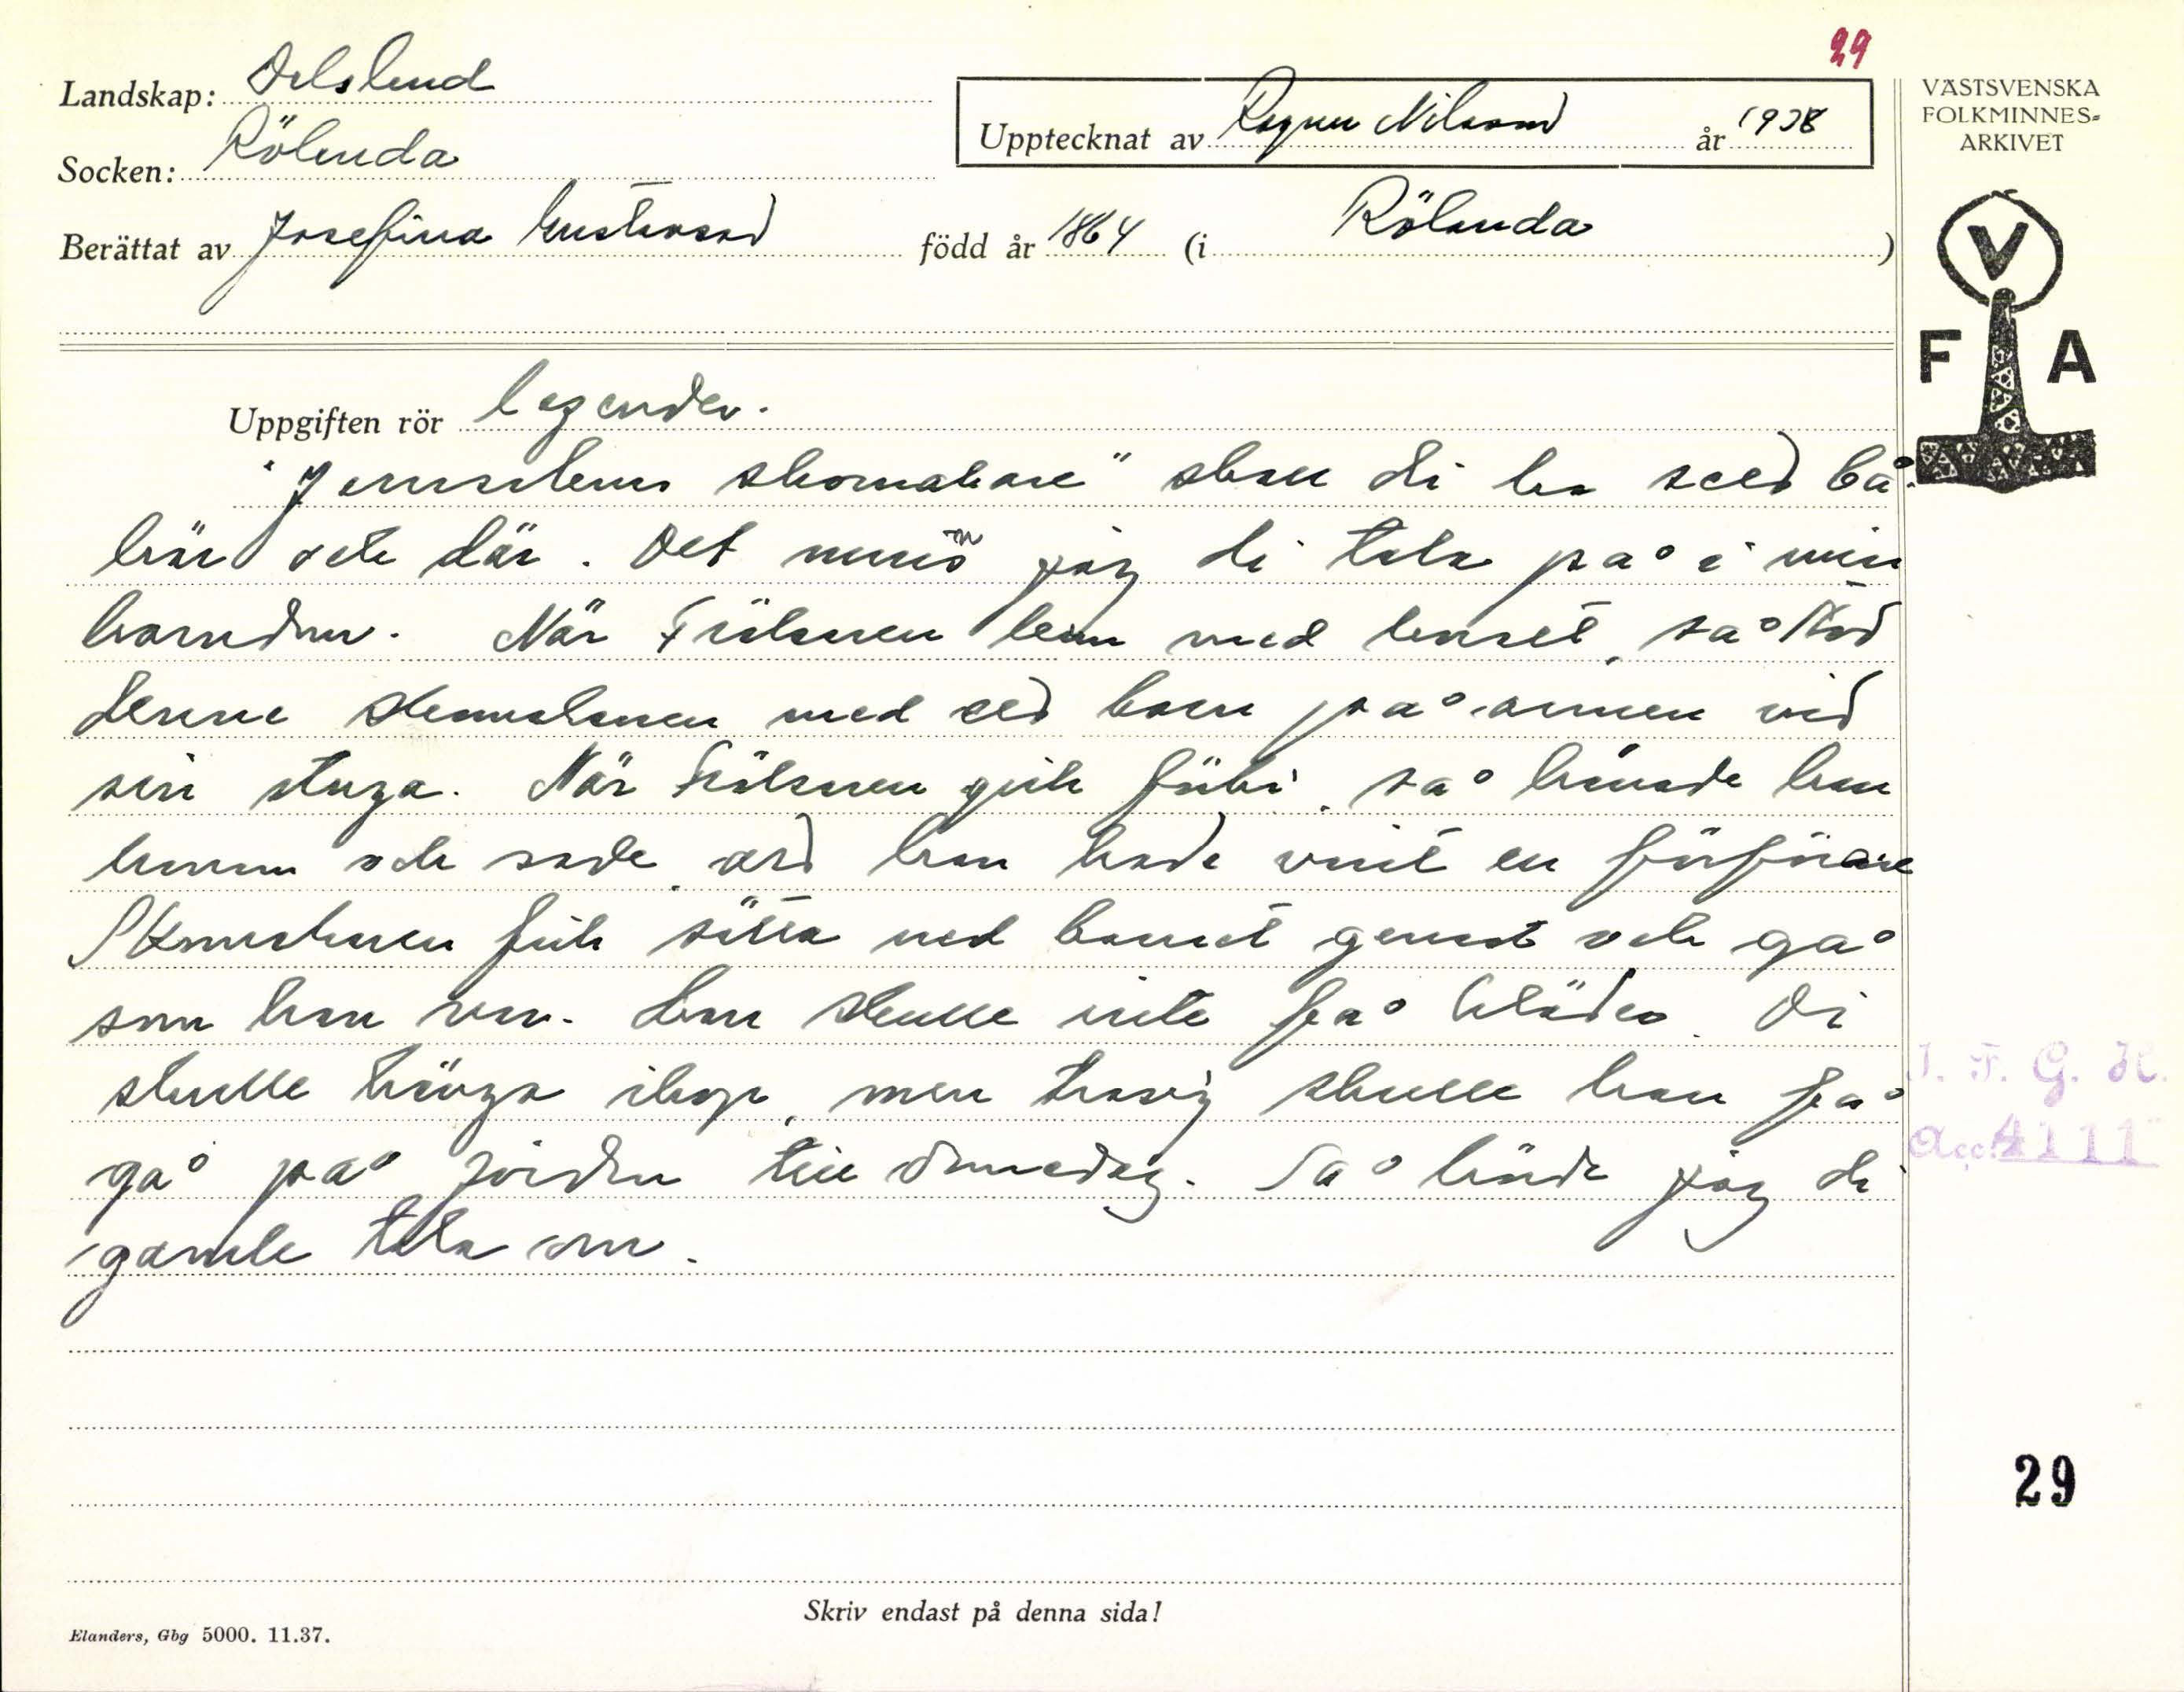 29
Landskap: Dalsland
Socken: Rölanda
Upptecknat av Ragnar Nilsson år 1938
Berättat av Josefina Gustavsson född år 1864 (i Rölanda)
VÄSTSVENSKA
FOLKMINNES=
ARKIVET
V
F A
Uppgiften rör legender.
"Jerusalems skomakare" skall di ha sett bå
här och där. Det minns jag di tala på i min
barndom. När Frälsaren kom med korset, så stod
denne skomakaren med ett barn på armen vid
sin stuga. När Frälsaren gick förbi, så hånade han
honom och sade att han hade varit en förförare
Skomakaren fick sätta ned barnet genast och gå
som han var. Han skulle inte få kläder. Di
skulle hänga ihop, men trasig skulle han få
gå på jorden till domedag. Så hörde jag di
gamle tala om.
I. F. G. H.
Acc. 4111
29
Skriv endast på denna sida!
Elanders, Gbg 5000. 11.37.